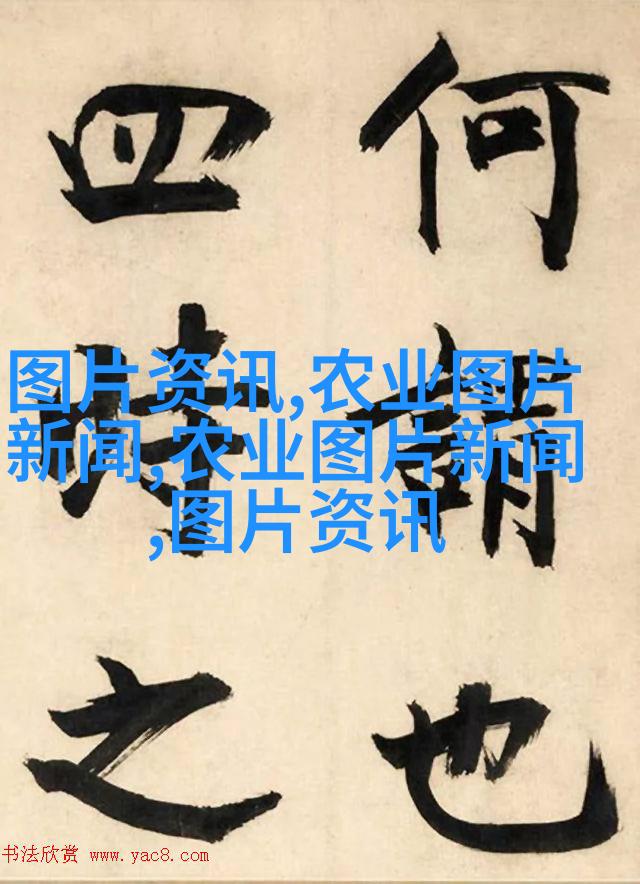 何謂也
四時之
图片资讯,农业图片
新闻,农业图片新闻
,图片资讯
书法欣赏 www.yac8.com